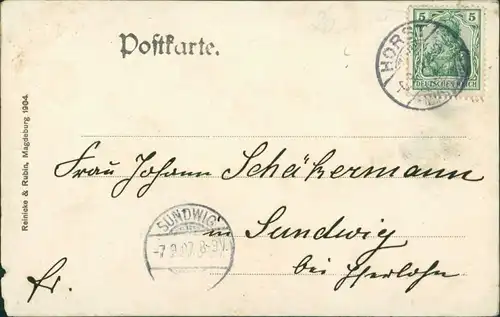 Postkarte.
5 5
DEUTSCHES REICH
HORST
Reinicke & Rubin, Magdeburg 1904.
Frau Johann Schäkermann
in Sundwig
bei Iserlohn
fr.
SUNDWIG
-7.9.07.8-9V.